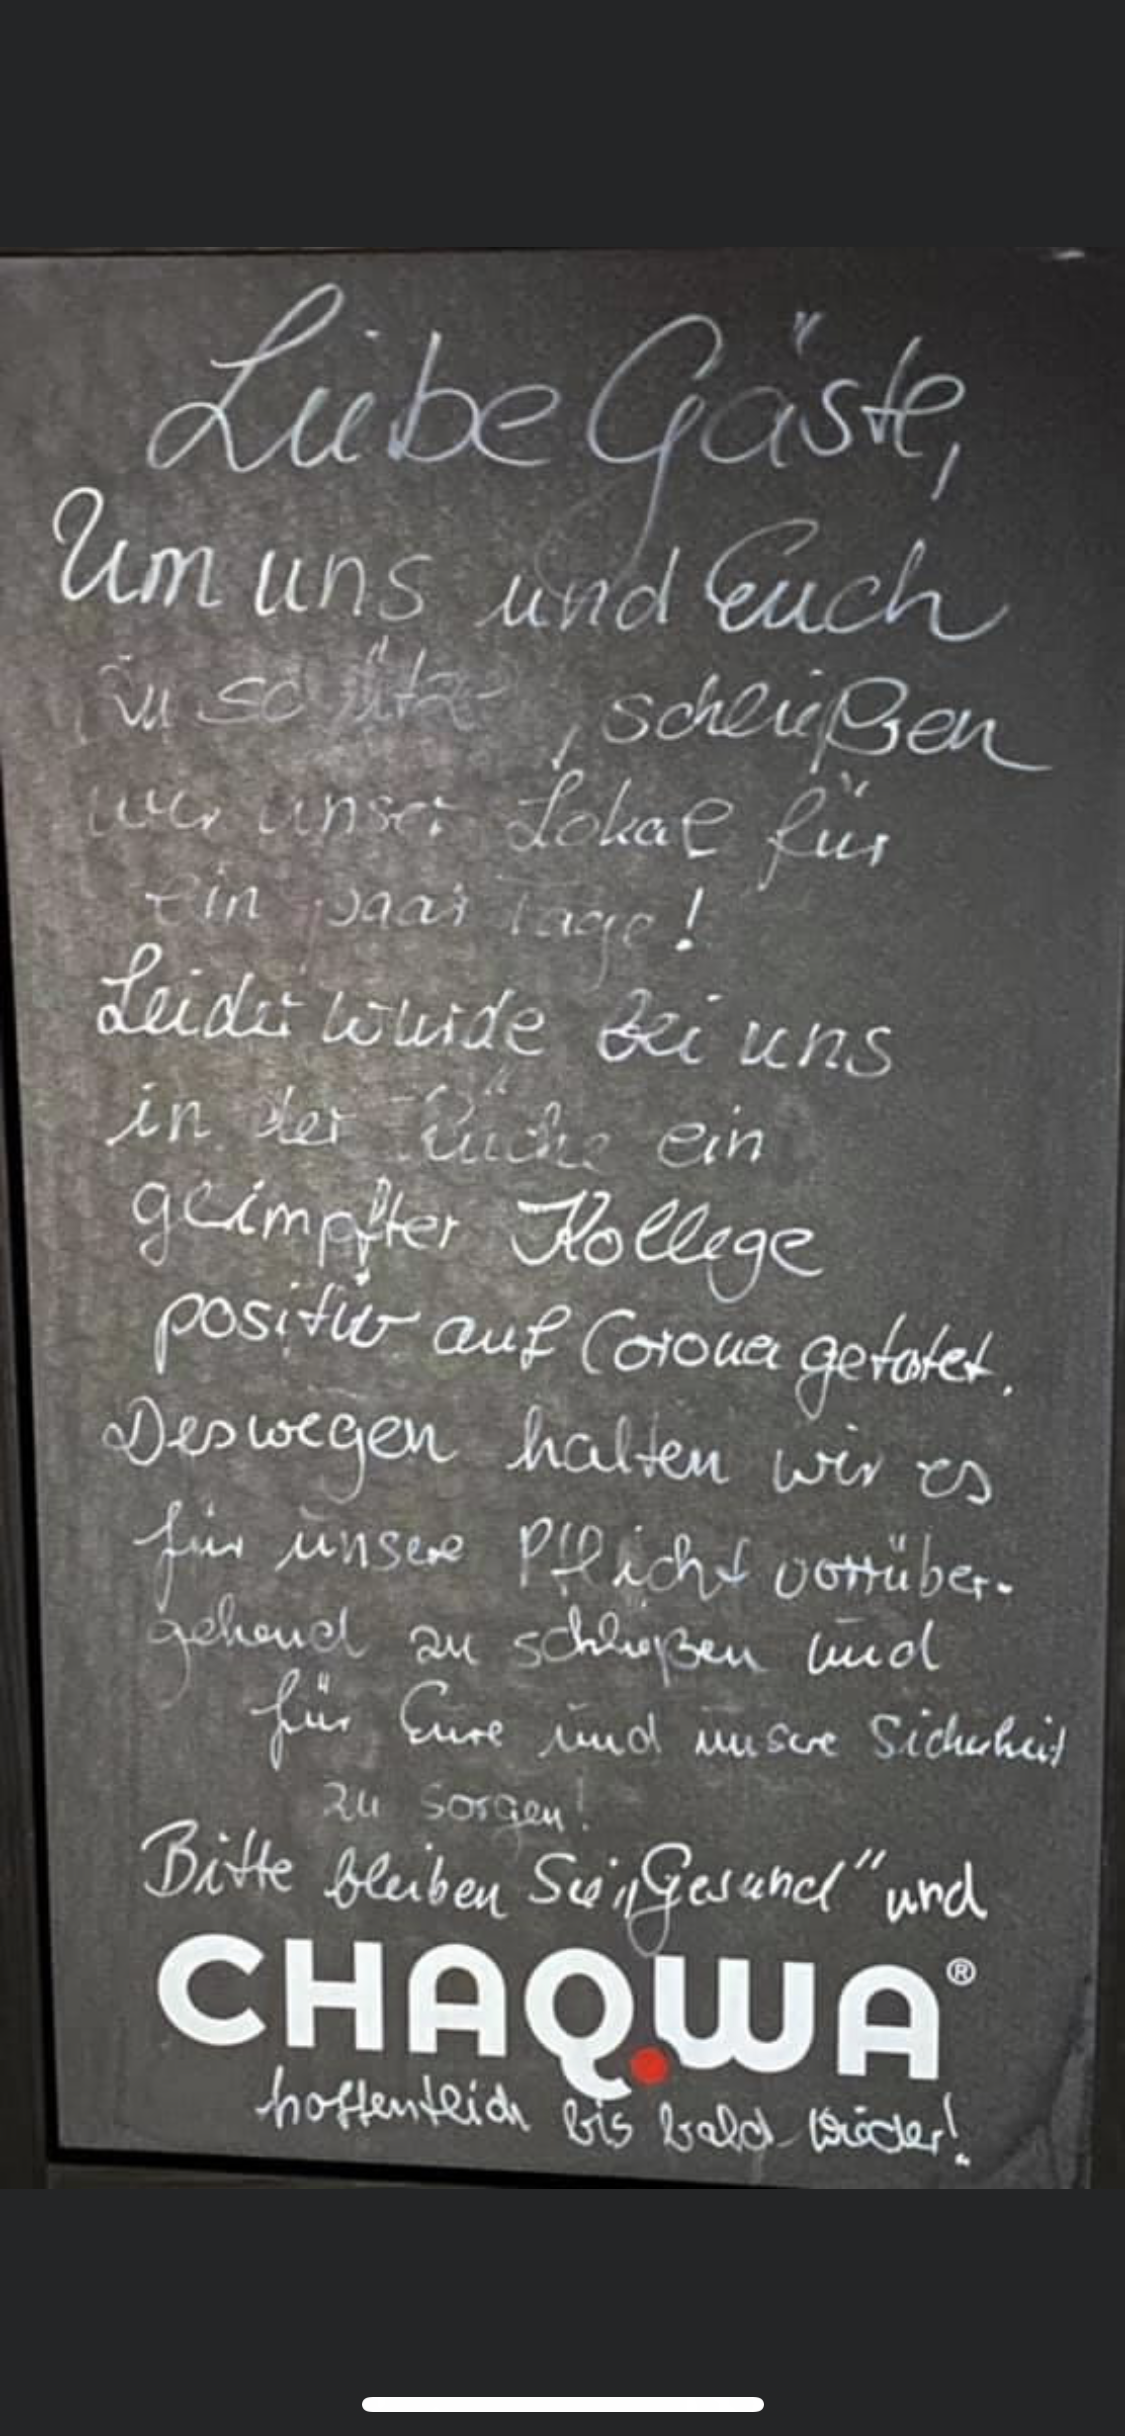 Liebe Gäste,
Um uns und Euch
zu schützen, schließen
wir unser Lokal für
ein paar Tage!
Leider wurde bei uns
in der Küche ein
geimpfter Kollege
positiv auf Corona getestet.
Deswegen halten wir es
für unsere Pflicht vorrüber-
gehend zu schließen und
für Eure und unsere Sicherheit
zu sorgen!
Bitte bleiben Sie „Gesund" und
CHAQWA®
hoffentlich bis bald wieder!